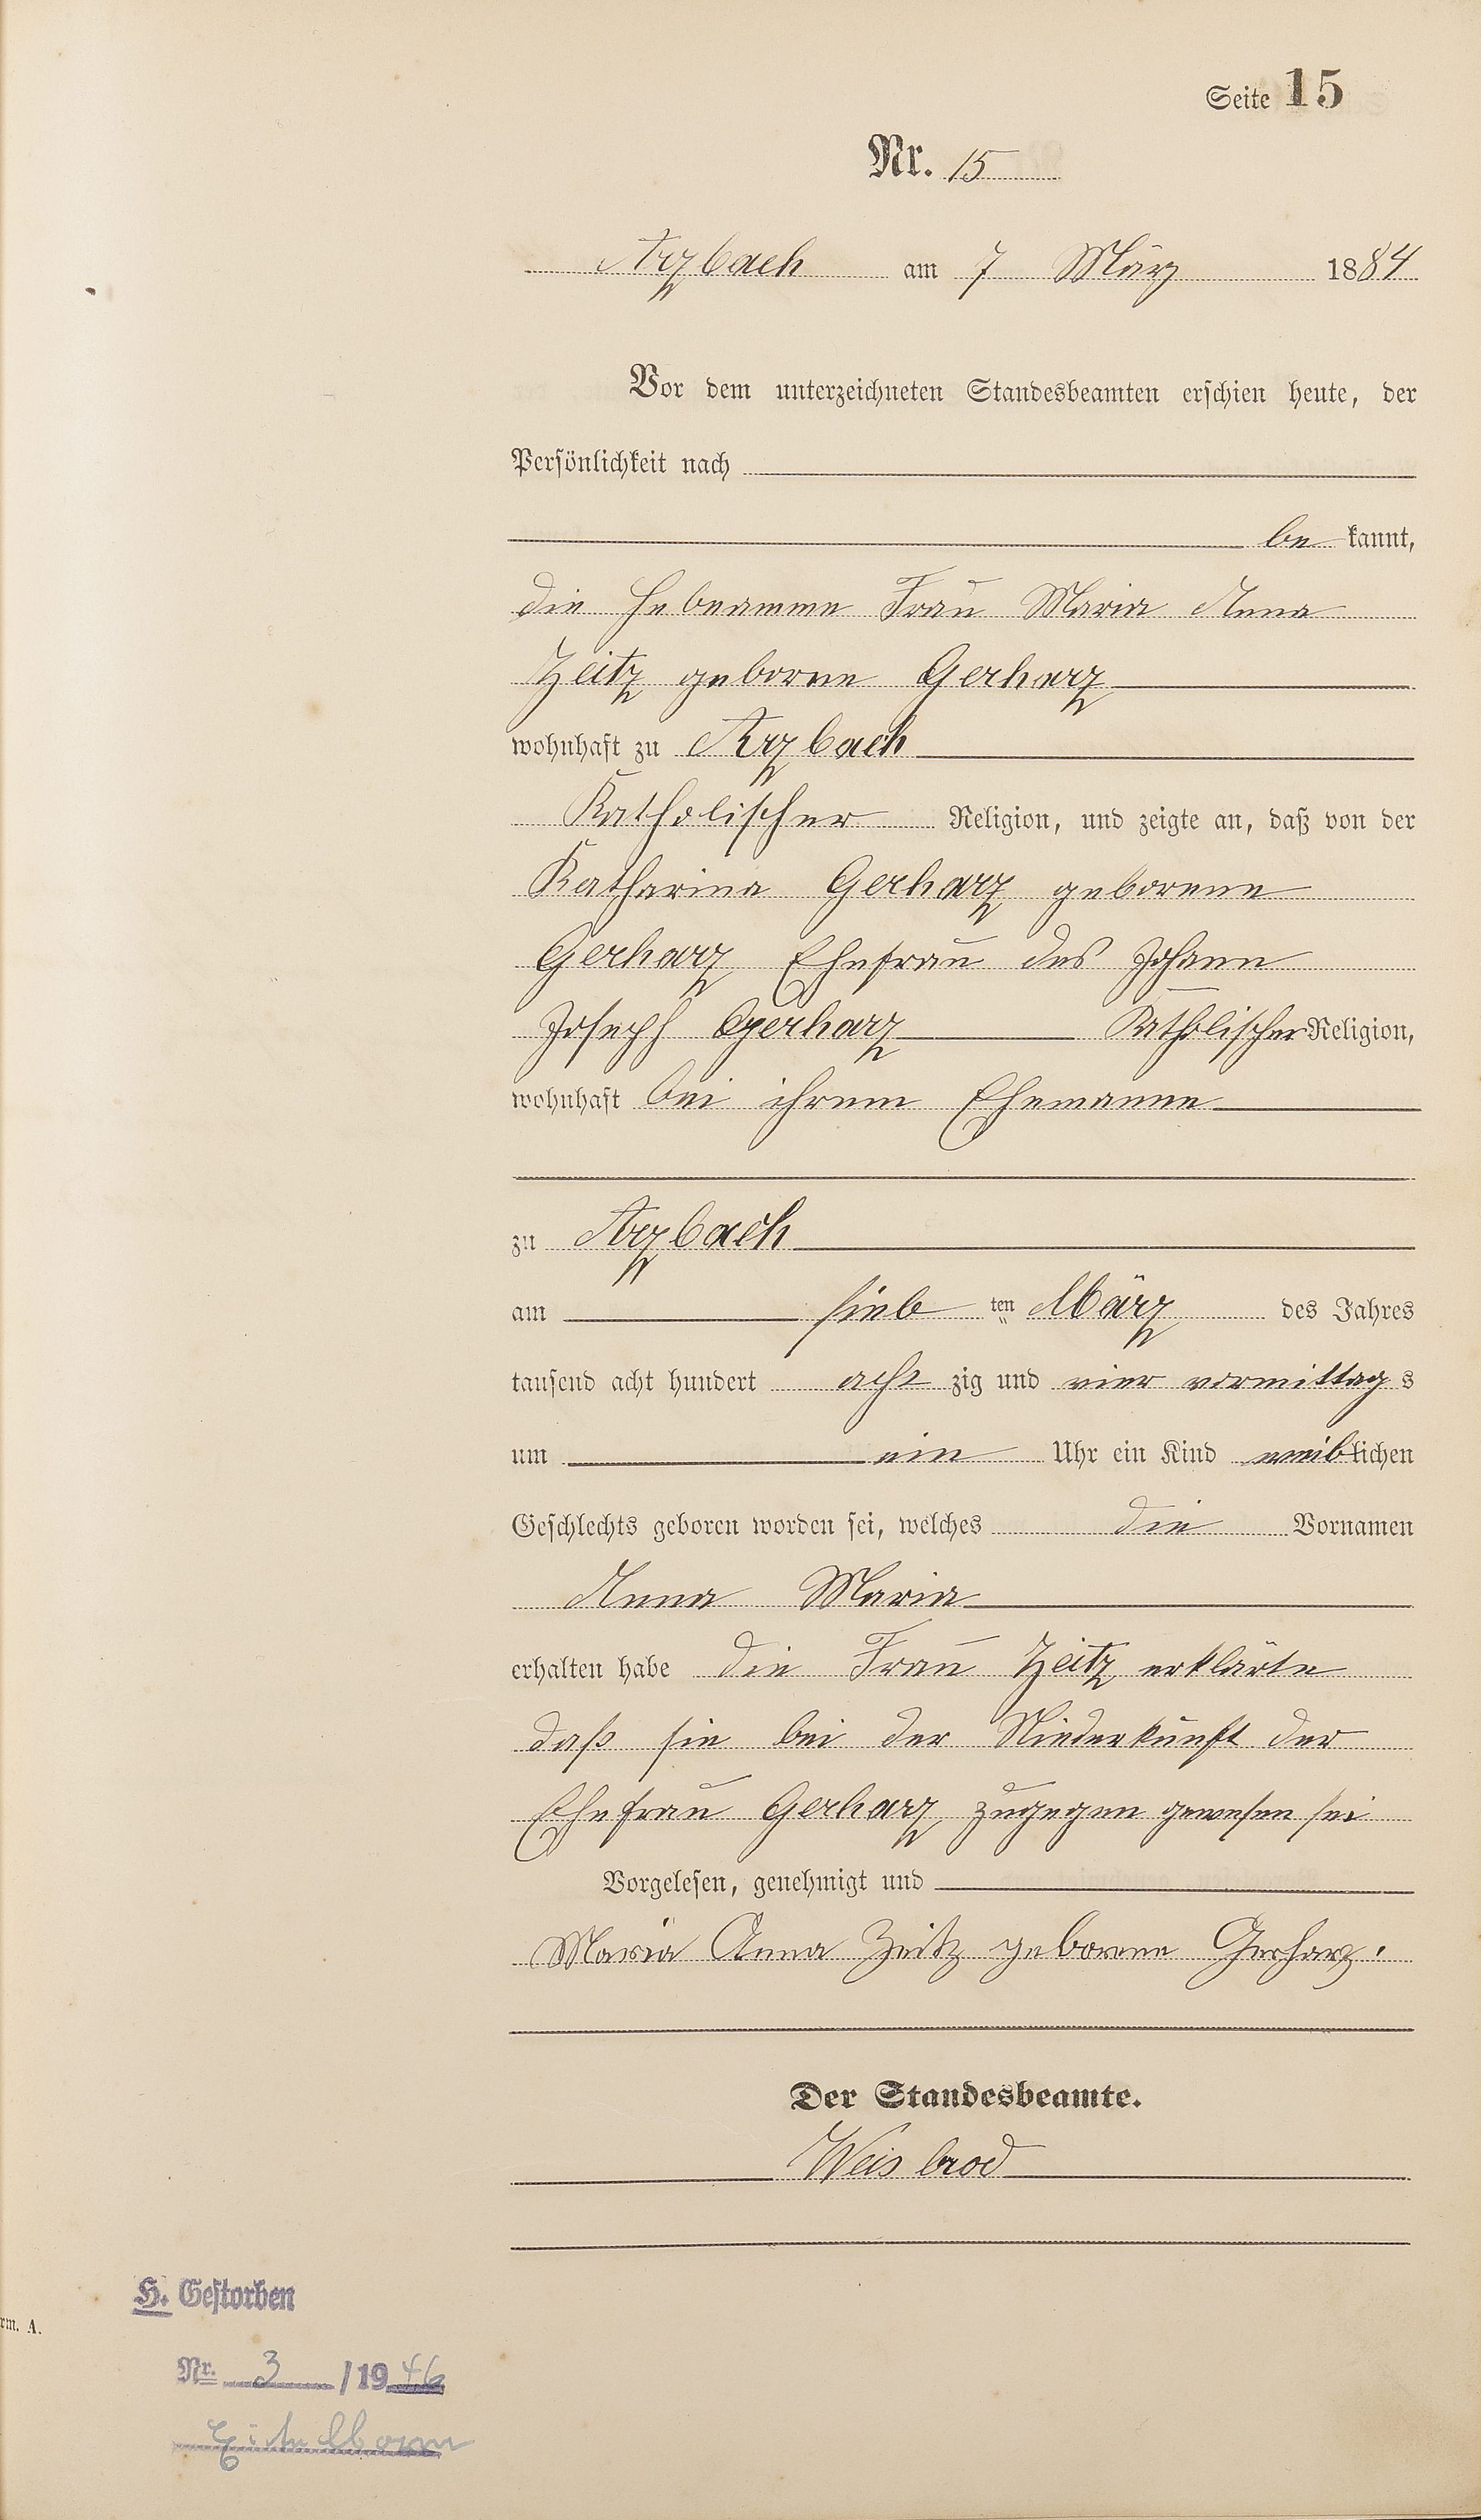 Seite 15
Nr. 15
Arzbach am 7 März 1884
Vor dem unterzeichneten Standesbeamten erschien heute, der
Persönlichkeit nach
be kannt,
die Hebeamme Frau Maria Anna
Zeitz geborne Gerharz
wohnhaft zu Arzbach
Katholischer Religion, und zeigte an, daß von der
Katharina Gerharz geborene
Gerharz Ehefrau des Johann
Joseph Gerharz Katholischer Religion,
wohnhaft bei ihrem Ehemanne
zu Arzbach
am sieb ten März des Jahres
tausend acht hundert acht zig und vier vormittag s
um ein Uhr ein Kind weiblichen
Geschlechts geboren worden sei, welches die Vornamen
Anna Maria
erhalten habe die Frau Zeitz erklärte
daß sie bei der Niederkunft der
Ehefrau Gerharz zugegen gewesen sei
Vorgelesen, genehmigt und
Maria Anna Zeitz geborene Gerharz.
Der Standesbeamte.
Weisbrod
H. Gestorben
rm. A.
Nr. 3 /1946
Eitelborn